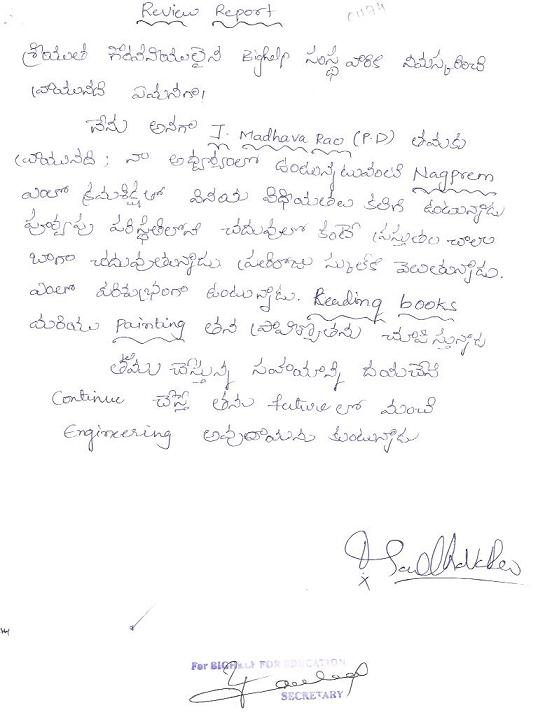 Review Report
శ్రీయుత గౌరవనీయులైన Bighelp సంస్థ వారికి నమస్కరించి
వ్రాయునది ఏమనగా!
నేను అనగా J. Madhava Rao (P.D) తమకు
వ్రాయునది ; నా అధ్వర్యంలో ఉంటున్నటువంటి Nagprem
ఎంతో క్రమశిక్షతో వినయ విధేయతలు కలిగి ఉంటున్నాడు
పూర్వపు పరిస్థితిలోని చదువులో కంటే ప్రస్తుతం చాలా
బాగా చదువుతున్నాడు ప్రతిరోజు స్కూల్‌కి వెలుతున్నాడు.
ఎంతో పరిశుభ్రంగా ఉంటున్నాడు. Reading books
మరియు painting తన ప్రావిణ్యతను చూపిస్తున్నాడు
తమరు చేస్తున్న సహాయాన్ని దయచేసి
Continue చేస్తే తను future లో మంచి
Engineering అవుదామను కుంటున్నాడు
For BIGHELP FOR EDUCATION
SECRETARY